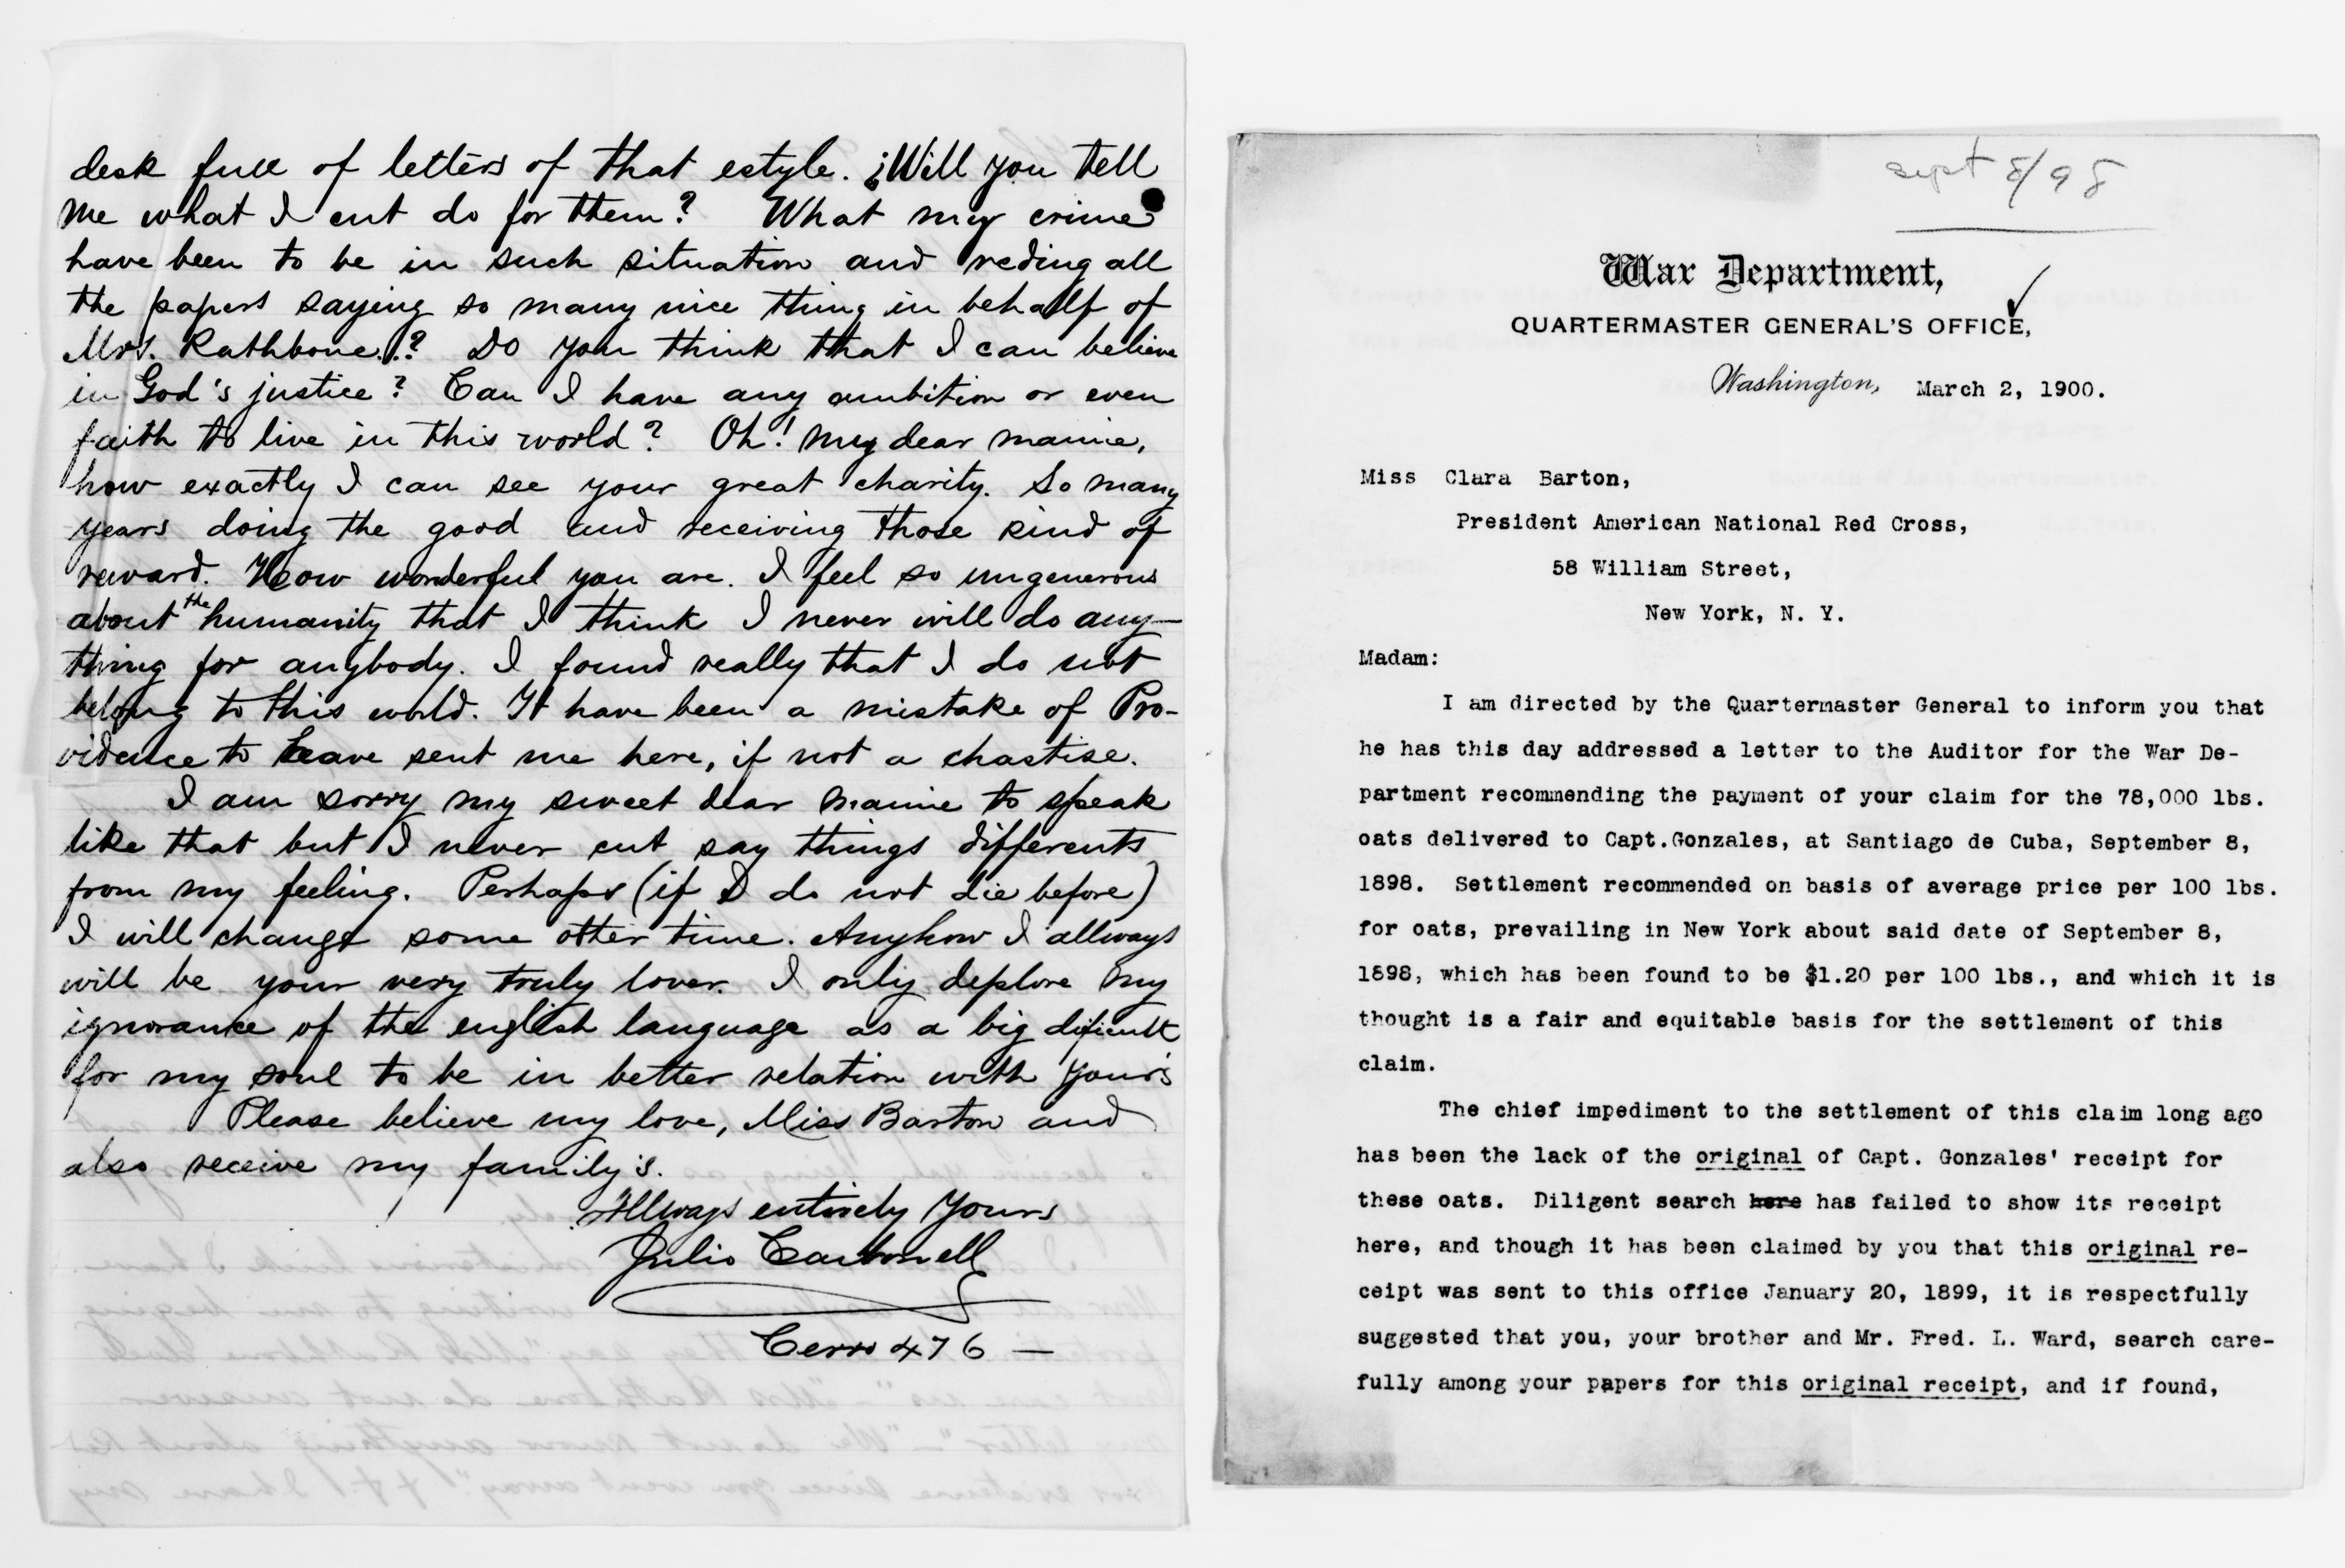 desk full of letters of that estyle. ¿Will you tell
me what I cut do for them? What my crime
have been to be in such situation and reding all
the papers saying so many nice thing in behalf of
Mrs. Rathbone.? Do you think that I can believe
in God's justice? Can I have any ambition or even
faith to live in this world? Oh! my dear mamie,
how exactly I can see your great charity. So many
years doing the good and receiving those kind of
reward. How wonderful you are. I feel so ungenerous
about the humanity that I think I never will do any-
thing for anybody. I found really that I do not
belong to this world. It have been a mistake of Pro-
vidence to have sent me here, if not a chastise.
I am sorry my sweet dear mamie to speak
like that but I never cut say things differents
from my feeling. Perhaps (if I do not die before)
I will change some otter time. Anyhow I allways
will be your very truly lover. I only deplore my
ignorance of the english language as a big dificult
for my soul to be in better relation with your's
Please believe my love, Miss Barton and
also receive my family's.
Allways entirely yours
Julio Carbonell
Cerro 476 —
sept 8/98
War Department,
QUARTERMASTER GENERAL'S OFFICE,
Washington, March 2, 1900.
Miss Clara Barton,
President American National Red Cross,
58 William Street,
New York, N. Y.
Madam:
I am directed by the Quartermaster General to inform you that
he has this day addressed a letter to the Auditor for the War De-
partment recommending the payment of your claim for the 78,000 lbs.
oats delivered to Capt.Gonzales, at Santiago de Cuba, September 8,
1898. Settlement recommended on basis of average price per 100 lbs.
for oats, prevailing in New York about said date of September 8,
1898, which has been found to be $1.20 per 100 lbs., and which it is
thought is a fair and equitable basis for the settlement of this
claim.
The chief impediment to the settlement of this claim long ago
has been the lack of the original of Capt. Gonzales' receipt for
these oats. Diligent search here has failed to show its receipt
here, and though it has been claimed by you that this original re-
ceipt was sent to this office January 20, 1899, it is respectfully
suggested that you, your brother and Mr. Fred. L. Ward, search care-
fully among your papers for this original receipt, and if found,